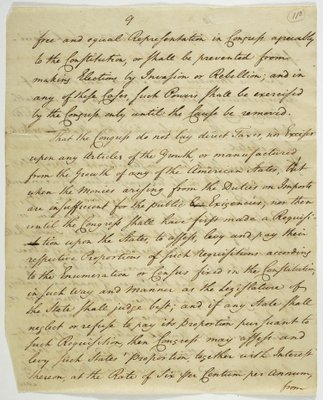 9
110
free and equal Representation in Congress agreeably
to the Constitution, or shall be prevented from
making Elections by Invasion or Rebellion; and in
any of these Cases, such Powers shall be exercised
by the Congress only until the Cause be removed.
That the Congress do not lay direct Taxes, nor Excises
upon any Articles of the Growth, or manufactured
from the Growth of any of the American States, but
when the Monies arising from the Duties on Imports
are insufficient for the public Exigencies; nor then
until the Congress shall have first made a Requisi-
tion upon the States, to assess, levy and pay their
respective Proportions of such Requisitions according
to the Enumeration or Census fixed in the Constitution,
in such Way and Manner as the Legislature of
the State shall judge best; and if any State shall
neglect or refuse to pay its Proportion pursuant to
such Requisition, then Congress may assess and
levy such States Proportion, together with Interest
thereon, at the Rate of Six Per Centum per Annum,
from